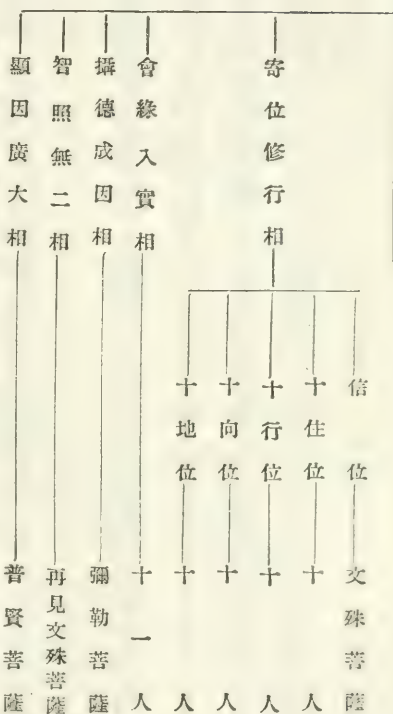 寄位修行相
信位
文殊菩薩
十住位
十人
十行位
十人
十向位
十人
十地位
十人
會緣入實相
十一人
攝德成因相
彌勒菩薩
智照無二相
再見文殊菩薩
顯因廣大相
普賢菩薩